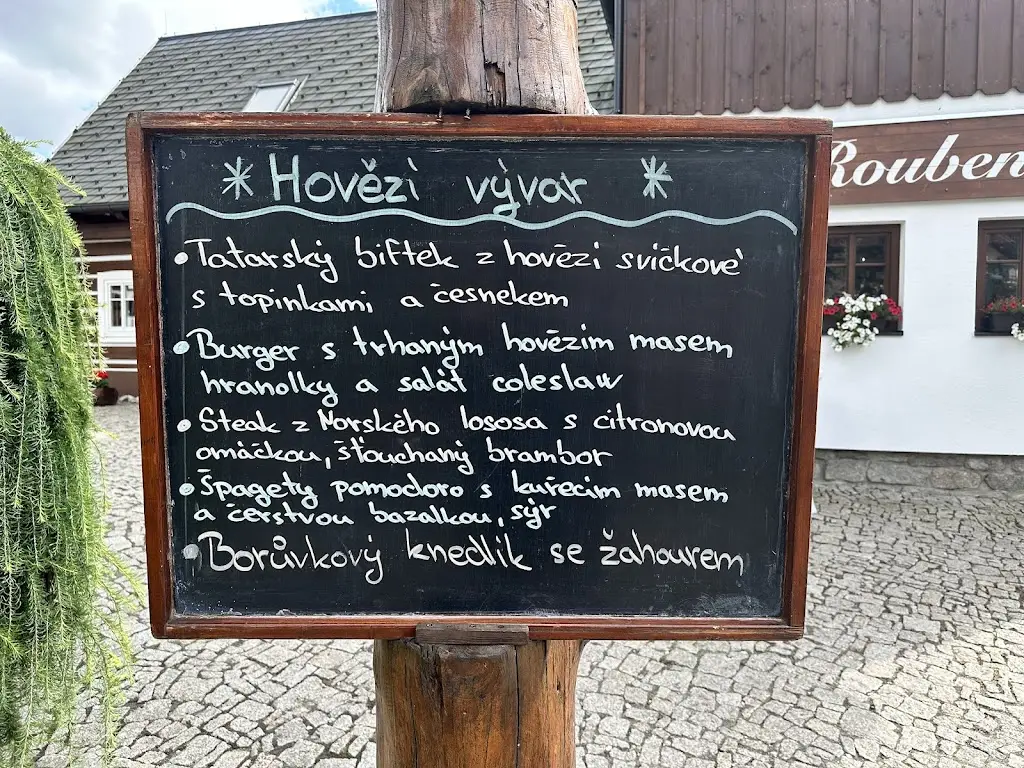 * Hovězí vývar *
• Tatarský biftek z hovězí svíčkové
s topinkami a česnekem
• Burger s trhaným hovězím masem
hranolky a salát coleslaw
• Steak z Norského lososa s citronovou
omáčkou, šťouchaný brambor
• Špagety pomodoro s kuřecím masem
a čerstvou bazalkou, sýr
• Borůvkový knedlík se žahourem
Rouben